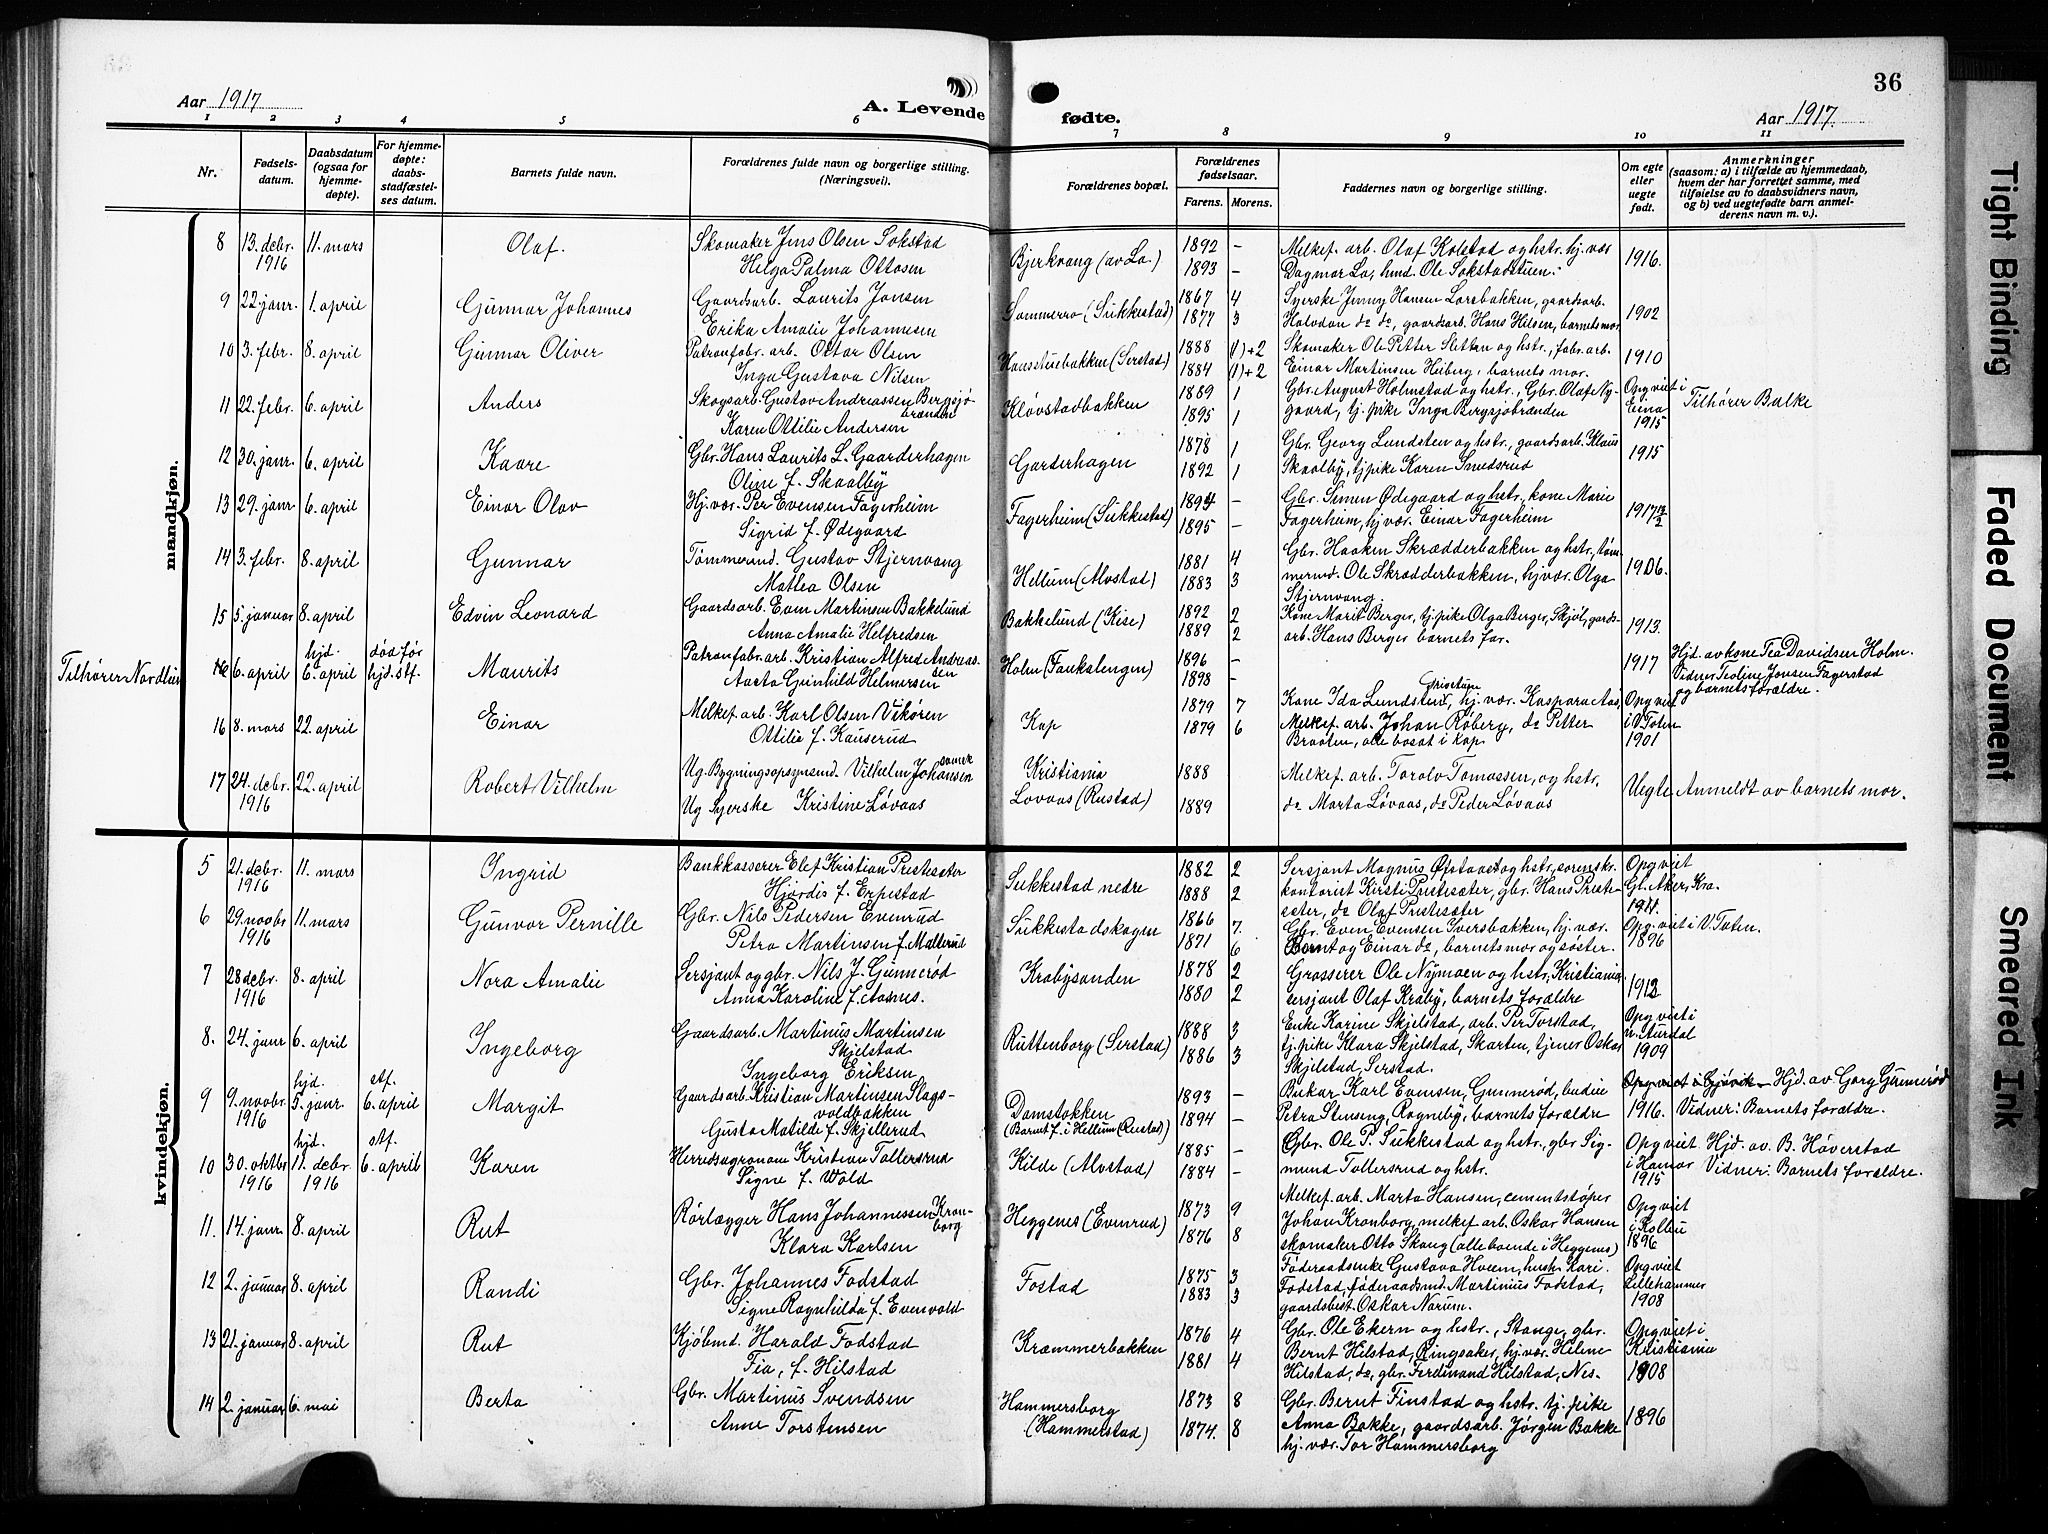 36
Aar 1917
A. Levende
fødte.
Aar 1917.
1 2 3 4 5 6 7 8 9 10 11
Nr.
Fødsels-
datum.
Daabsdatum
(ogsaa for
hjemme-
døpte).
For hjemme-
døpte:
daabs-
stadfæstel-
ses datum.
Barnets fulde navn.
Forældrenes fulde navn og borgerlige stilling.
(Næringsvei).
Forældrenes bopæl.
Forældrenes
fødselsaar.
Farens. Morens.
Faddernes navn og borgerlige stilling.
Om egte
eller
uegte
født.
Anmerkninger
(saasom: a) i tilfælde av hjemmedaab,
hvem der har forrettet samme, med
tilføielse av to daabsvidners navn,
og b) ved uegtefødte barn anmel-
derens navn m. v.).
mandkjøn.
8 13. debr. 11. mars Olaf. Skomaker Jens Olsen Sokstad Bjerkvang (av Lo.) 1892 – Melkef. arb. Olaf Kolstad og hstr. hj. vær 1916.
1916 Helga Palma Ottosen 1893 – Dagmar Lo, hmd. Ole Sokstadstuen.
9 22. janr. 1. april Gunnar Johannes Gaardsarb. Laurits Jonsen Sommerro (Sukkestad) 1867 4 Syerske Jenny Hansen Lorsbakken, gaardsarb. 1902
Erika Amalie Johannesen 1877 3 Halvdan do do, gaardsarb. Hans Nilsen, barnets mor.
10 3. febr. 8. april Gunnar Oliver Patronfabr. arb. Ottar Olsen Hansstuebakken (Serstad) 1888 (1)+2 Skomaker Ole Petter Sletten og hstr., fabr. arb. 1910
Inga Gustava Nilsen 1884 (1)+2 Einar Martinsen Huberg, barnets mor.
11 22. febr. 6. april Anders Skogsarb. Gustav Andreassen Bergsjø- Kløvstadbakken 1889 1 Gbr. August Holmstad og hstr., Gbr. Olaf Ny- Opg. viet i Tilhører Balke
brænden
Karen Ottilie Andersen 1895 1 gaard, tj. pike Inga Bergsjøbrænden Eina
1915
12 30. janr. 6. april Kaare Gbr. Hans Laurits L. Gaarderhagen Garderhagen 1878 1 Gbr. Georg Lundsten og hstr., gaardsarb. Klaus 1915
Oline f. Skaalby 1892 1 Skaalby, tj. pike Karen Smedsrud
13 29. janr 6. april Einar Olav Hj. vær. Per Evensen Fagerheim Fagerheim (Sukkestad) 1894 – Gbr. Simen Ødegaard og hstr., kone Marie 1917
Sigrid f. Ødegaard 1895 – Fagerheim, hj. vær. Einar Fagerheim
14 3. febr. 8. april Gunnar Tømmermd. Gustav Stjernvang Hellum (Alvstad) 1881 4 Gbr. Haaken Skrædderbakken og hstr., tøm- 1906.
Mathea Olsen 1883 3 mermd. Ole Skrædderbakken, hj. vær. Olga
Stjernvang.
15 5. januar 8. april Edvin Leonard Gaardsarb. Even Martinsen Bakkelund Bakkelund (Kise) 1892 2 Kone Marit Berger, tj. pike Olga Berger, Skjøl, gaards- 1913.
Anna Amalie Helfredsen 1889 2 arb. Hans Berger barnets far.
Tilhører Nordlien 6. april hjd. 6. april død før hjd. stf. Maurits Patronfabr. arb. Kristian Alfred Andreas- Holm (Faukalengen) 1896 – 1917 Hjd. av kone Tea Davidsen Holm.
sen
Aasta Gunhild Helmersen 1898 – Vidner Teoline Jonsen Fagerstad
og barnets forældre.
16 8. mars 22. april Einar Melkef. arb. Karl Olsen Vikøren Kap 1879 7 Kone Ida Lundstend, hj. vær. Kaspara Aas Opg. viet
Ottilie f. Kauserud 1879 6 Melkef. arb. Johan Røberg, do Petter i Ø. Toten
Braaten, alle bosat i Kap 1901
17 24. debr. 22. april Robert Vilhelm Ug. Bygningsopsynsmd. Vilhelm Johansen Kristiania 1888 Melkef. arb. Torolv Tomassen, og hstr. Uegte Anmeldt av barnets mor.
1916 Ug Syerske Kristine Løvaas Lovaas (Rustad) 1889 do Marta Løvaas, do Peder Løvaas
kvindekjøn.
5 21. debr. 11. mars Ingrid Bankkasserer Elef Kristian Prestesæter Sukkestad nedre 1882 2 Sersjant Magnus Opstaast og hstr, sorenskr. Opg viet
1916 Hjørdis f. Erpestad 1888 2 kontorist Kirsti Prestesæter, gbr. Hans Preste- Gl. Aker, Kra.
sæter, do Olaf Prestesæter 1911.
6 29. novbr 11. mars Gunvor Pernille Gbr. Nils Pedersen Evenrud Sukkestadskogen 1866 7. Gbr. Even Evensen Iversbakken, hj. vær. Opg. viet i V. Toten.
1916 Petra Martinsen f. Møllerud 1871 6 Bernt og Einar do, barnets mor og søster. 1896
7 28 debr. 8. april Nora Amalie Sersjant og gbr. Nils J. Gunnerød Krabysanden 1878 2 Grosserer Ole Nymoen og hstr, Kristiania 1912
1916 Anna Karoline f. Aasnes. 1880 2 sersjant Olaf Kraby, barnets forældre
8. 24. janr 6. april Ingeborg Gaardsarb. Martinus Martinsen Ruttenborg (Serstad) 1888 3 Enke Karine Skjelstad, arb. Per Torstad, Opg viet i
Skjelstad tj. pike Klara Skjelstad, Skarten, tjener Oskar n. Aurdal
Ingeborg Eriksen 1886 3 Skjelstad, Serstad. 1909
9 9. novbr. hjd. 5. janr. stf. 6. april Margit Gaardsarb. Kristian Martinsen Slags- Damstokken 1893 – Baker Karl Evensen, Gunnerød, budeie Opg viet i Gjøvik – Hjd. av Gorg Gunnerød
1916 voldbakken (Barnet f. i Hellum (Rustad) 1894 – Petra Stensing, Rogneby, barnets forældre 1916. Vidner: Barnets forældre.
Gusta Matilde f. Skjellerud
10 30. oktbr hjd. 11. debr. stf. 6. april Karen Herredsagronom Kristian Tollersrud Kilde (Alvstad) 1885 – Gbr. Ole P. Sukkestad og hstr., gbr Sig- Opg viet Hjd. av. B. Høverstad
1916 1916 Signe f. Wold 1884 – mund Tollersrud og hstr. i Hamar Vidner: Barnets forældre.
1915
11. 14. janr. 8. april Rut Rørlægger Hans Johannessen Kron- Heggenes (Evenrud) 1873 9 Melkef. arb. Marta Hansen, cementstøper Opg viet
borg Johan Kronborg, melkef. arb. Oskar Hansen i Kolbu
Klara Karlsen 1876 8 skomaker Otto Skaug (alle boende i Heggenes) 1896
12 2. januar 8. april Randi Gbr. Johannes Fodstad Fostad 1875 3 Føderaadsenke Gustava Hveem, hush. Kari Opg viet
Signe Ragnhilda f. Evenvold 1883 3 Fodstad, føderaadsmd. Martinius Fodstad, Lillehammer
gaardsbest. Oskar Narum. 1908
13 21. januar 8. april Rut Kjøbmd. Harald Fodstad Kræmmerbakken 1876 4 Gbr. Ole Ekern og hstr., Stange, gbr. Opg viet i
Fia, f. Hilstad 1881 4 Bernt Hilstad, Ringsaker, hj. vær. Helene Kristiania
Hilstad, do, gbr. Ferdinand Hilstad, Nes. 1908
14 2. januar 6. mai Berta Gbr. Martinus Svendsen Hammersborg 1873 8 Gbr. Bernt Finstad og hstr. tj. pike 1896
Anne Torstensen (Hammerstad) 1874. 8 Anna Bakke, gaardsarb. Jørgen Bakke
hj. vær. Tor Hammersborg
Tight Binding
Faded Document
Smeared Ink